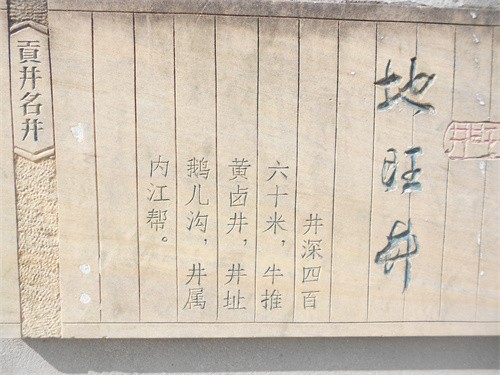 地旺井
井深四百
六十米，牛推
黄卤井，井址
鹅儿沟，井属
内江帮。
貢井名井